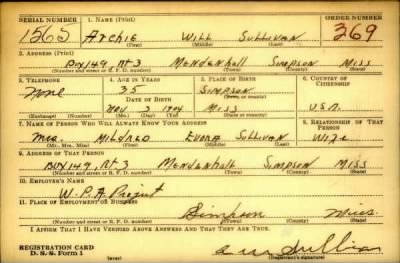 SERIAL NUMBER 1. NAME (Print) ORDER NUMBER
1565 Archie Will Sullivan 369
(First) (Middle) (Last)
2. ADDRESS (Print)
Box 149, Rt 3 Mendenhall Simpson Miss
(Number and street or R. F. D. number) (Town) (County) (State)
3. TELEPHONE 4. AGE IN YEARS 5. PLACE OF BIRTH 6. COUNTRY OF CITIZENSHIP
None 35 Simpson
DATE OF BIRTH (Town or county)
Nov. 3 1904 Miss U.S.A.
(Exchange) (Number) (Mo.) (Day) (Yr.) (State or country)
7. NAME OF PERSON WHO WILL ALWAYS KNOW YOUR ADDRESS 8. RELATIONSHIP OF THAT PERSON
Mrs. Mildred Sullivan Wife
(Mr., Mrs., Miss) (First) (Middle) (Last)
9. ADDRESS OF THAT PERSON
Box 149, Rt 3 Mendenhall Simpson Miss
(Number and street or R. F. D. number) (Town) (County) (State)
10. EMPLOYER'S NAME
W.P.A. Project
11. PLACE OF EMPLOYMENT OR BUSINESS
Simpson Miss
(Number and street or R. F. D. number) (Town) (County) (State)
I AFFIRM THAT I HAVE VERIFIED ABOVE ANSWERS AND THAT THEY ARE TRUE.
REGISTRATION CARD
D. S. S. Form 1 Sullivan
(Registrant's signature)